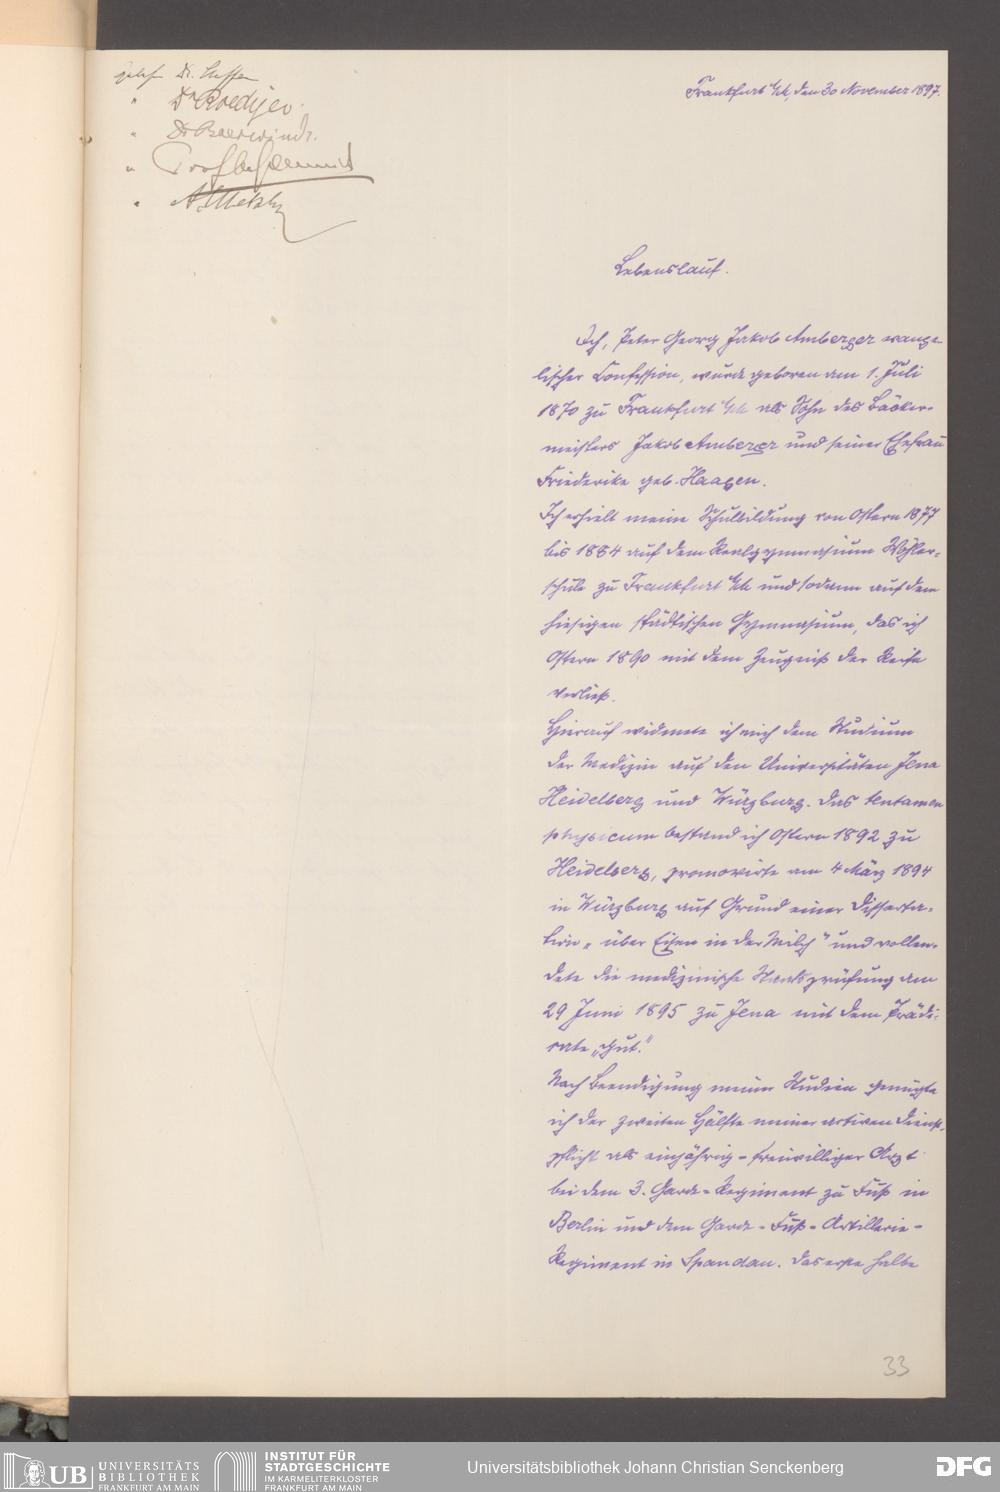 gelesen Dr.
" Dr Roediger
" Dr Baerwindt.
"
" A. Metzler
Frankfurt a/M, den 30 November 1897.
Lebenslauf.
Ich, Peter Georg Jakob Amberger evange-
lischer Confession, wurde geboren am 1. Juli
1870 zu Frankfurt a/M als Sohn des Bäcker-
meisters Jakob Amberger und seiner Ehefrau
Friederike geb. Haagen.
Ich erhielt meine Schulbildung von Ostern 1877
bis 1884 auf dem Realgymnasium Wöhler-
schule zu Frankfurt a/M und sodann auf dem
hiesigen städtischen Gymnasium, das ich
Ostern 1890 mit dem Zeugniß der Reife
verließ.
Hierauf widmete ich mich dem Studium
der Medizin auf den Universitäten Jena
Heidelberg und Würzburg. Das tentamen
physicum bestand ich Ostern 1892 zu
Heidelberg, promovirte am 4 März 1894
in Würzburg auf Grund einer Disserta-
tion „über Eisen in der Milch" und vollen-
dete die medizinische Staatsprüfung am
29 Juni 1895 zu Jena mit dem Prädi-
cate „gut."
Nach Beendigung meiner Studien genügte
ich der zweiten Hälfte meiner activen Dienst-
pflicht als einjährig-freiwilliger Arzt
bei dem 3. Garde-Regiment zu Fuß in
Berlin und dem Garde-Fuß-Artillerie-
Regiment in Spandau. Das erste halbe
33
UB UNIVERSITÄTS
BIBLIOTHEK
FRANKFURT AM MAIN
INSTITUT FÜR
STADTGESCHICHTE
IM KARMELITERKLOSTER
FRANKFURT AM MAIN
Universitätsbibliothek Johann Christian Senckenberg
DFG